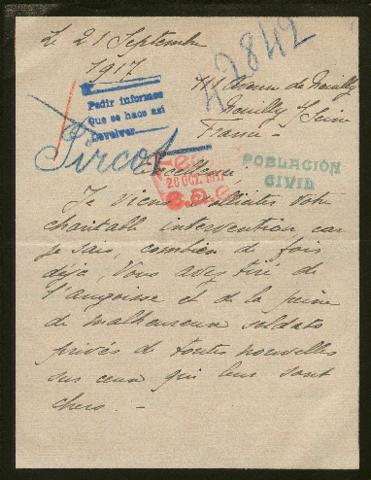 Le 21 Septembre
1917
42842
111 Avenue de Neuilly
Neuilly s/ Seine
France -
Pedir informes
Que se hace así
Devolver
Pircot
Excellence,
28 OCT. 1917
POBLACIÓN
CIVIL
Je viens solliciter votre
charitable intervention car
je sais, combien de fois
déjà, Vous avez tiré de
l'angoisse et de la peine
de malheureux soldats
privés de toutes nouvelles
sur ceux qui leur sont
chers. -